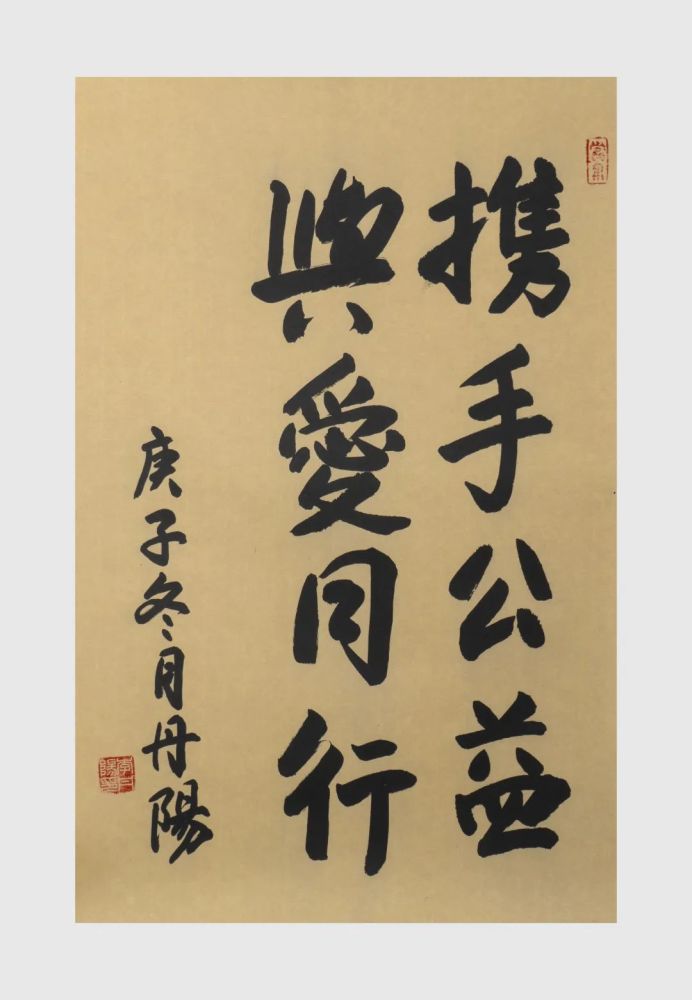 携手公益
與愛同行
庚子冬月丹陽